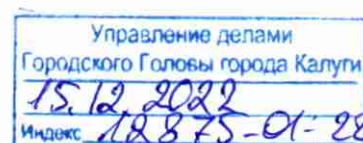 Управление делами
Городского Головы города Калуги
15.12.2022
Индекс 12875-01-22